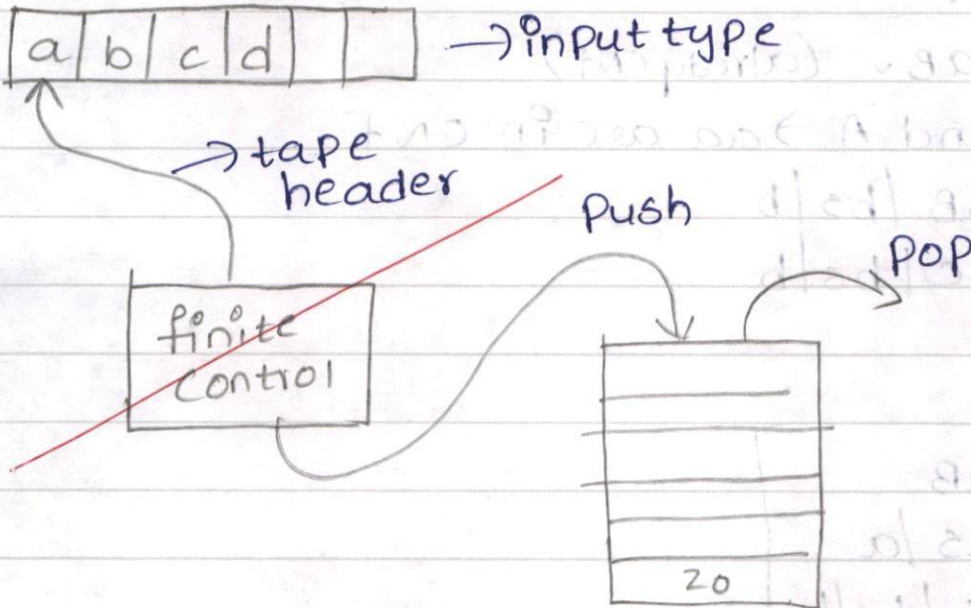 a b c d → input type
→ tape
header
push
pop
finite
control
20